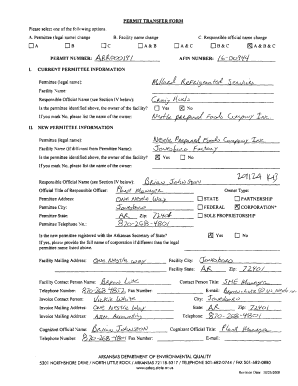 PERMIT TRANSFER FORM
Please select one of the following options
A. Permittee (legal name) change B. Facility name change C. Responsible official name change
A B C A & B A & C B & C A & B & C
PERMIT NUMBER: AFIN NUMBER:
I. CURRENT PERMITTEE INFORMATION
Permittee (legal name): Millard Refrigerated Services
Facility Name
Responsible Official Name (see Section IV below): Craig
Is the permittee identified above, the owner of the facility? Yes No
If you mark No, please list the name of the owner: Nestle Prepared Foods Company Inc
II. NEW PERMITTEE INFORMATION
Permittee (legal name): Nestle Prepared Foods Company Inc
Facility Name (if different from Permittee Name): Jonesboro Factory
Is the permittee identified above, the owner of the facility? Yes No
If you mark No, please list the name of the owner:
Responsible Official Name (see Section IV below): Brian Johnston
Official Title of Responsible Officer: Plant Manager Owner Type:
Permittee Address: One Nestle Way STATE PARTNERSHIP
Permittee City: Jonesboro FEDERAL CORPORATION*
Permittee State: AR Zip 72401 SOLE PROPRIETORSHIP
Permittee Telephone No.: 870-268-4801
Is the new permittee registered with the Arkansas Secretary of State? Yes No
If yes, please provide the full name of corporation if different than the legal
permittee name listed above.
Facility Mailing Address: One Nestle Way Facility City: Jonesboro
Facility State: AR Zip: 72401
Facility Contact Person Name: Contact Person Title: SHE Manager
Telephone Number: Fax Number: E-mail:
Invoice Contact Person: Vickie White City: Jonesboro
Invoice Mailing Address: One Nestle Way State: AR Zip 72401
Invoice Mailing Address: Attn Accounting Telephone: 870-268-
Cognizant Official Name: Brian Johnston Cognizant Official Title: Plant Manager
Telephone Number: Fax Number: E-mail:
ARKANSAS DEPARTMENT OF ENVIRONMENTAL QUALITY
5301 NORTHSHORE DRIVE / NORTH LITTLE ROCK / ARKANSAS 72118-5317 / TELEPHONE 501-682-0744 / FAX 501-682-0880
www.adeq.state.ar.us